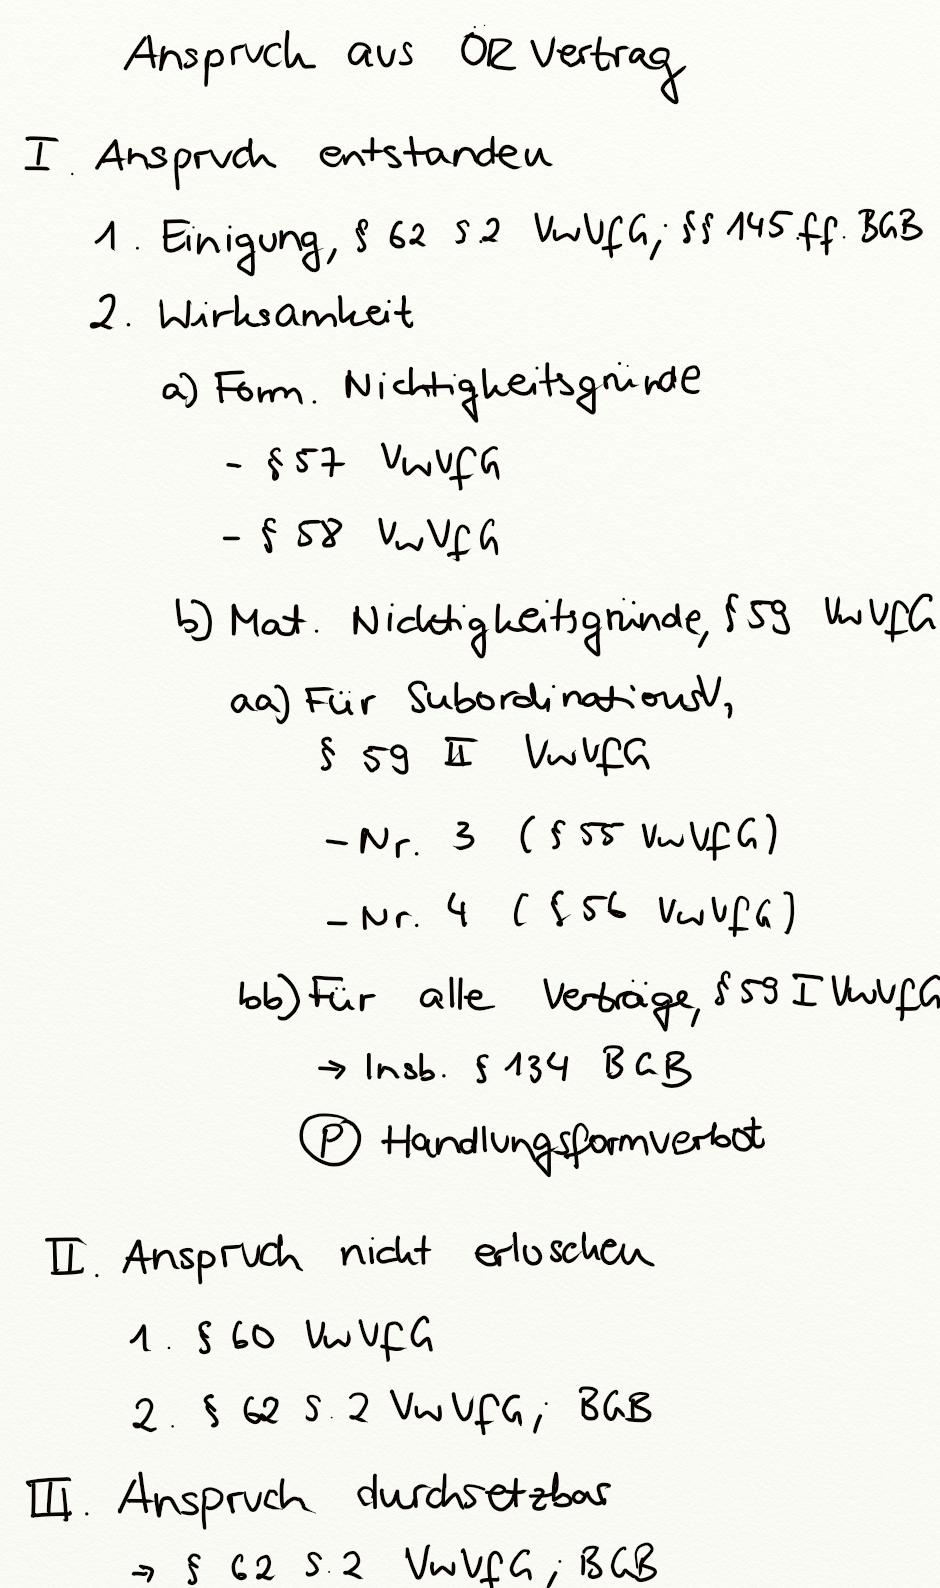 Anspruch aus ÖR Vertrag
I. Anspruch entstanden
1. Einigung, § 62 S. 2 VwVfG; §§ 145 ff. BGB
2. Wirksamkeit
a) Form. Nichtigkeitsgründe
- § 57 VwVfG
- § 58 VwVfG
b) Mat. Nichtigkeitsgründe, § 59 VwVfG
aa) Für SubordinationsV,
§ 59 II VwVfG
- Nr. 3 (§ 55 VwVfG)
- Nr. 4 (§ 56 VwVfG)
bb) Für alle Verträge, § 59 I VwVfG
→ Insb. § 134 BGB
(P) Handlungsformverbot
II. Anspruch nicht erloschen
1. § 60 VwVfG
2. § 62 S. 2 VwVfG; BGB
III. Anspruch durchsetzbar
→ § 62 S. 2 VwVfG; BGB